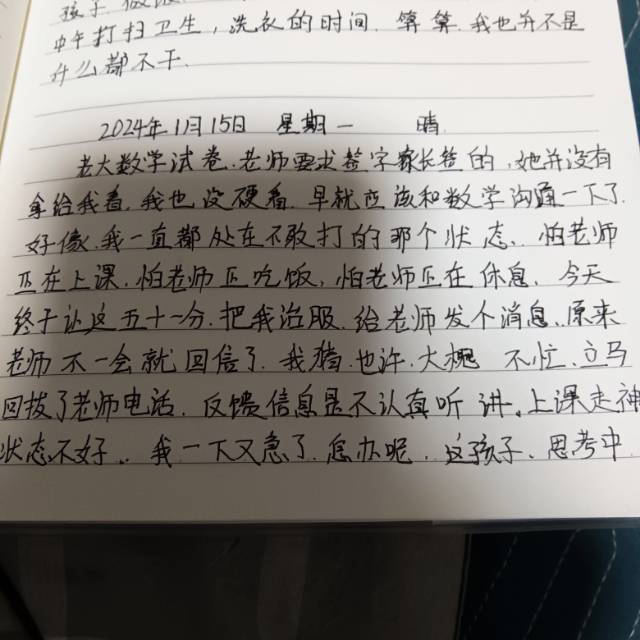 孩子做饭
中午打扫卫生，洗衣的时间.算算.我也并不是
什么都不干.
2024年1月15日 星期一 晴.
老大数学试卷.老师要求签字家长签的.她并没有
拿给我看.我也没硬看.早就应该和数学沟通一下了.
好像.我一直都处在不敢打的那个状态.怕老师
正在上课,怕老师正吃饭,怕老师正在休息.今天
终于让这五十一分.把我治服.给老师发个消息.原来
老师不一会就回信了.我猜.也许.大概 不忙.立马
回拨了老师电话.反馈信息是不认真听讲.上课走神
状态不好..我一下又急了.怎办呢.这孩子.思考中.